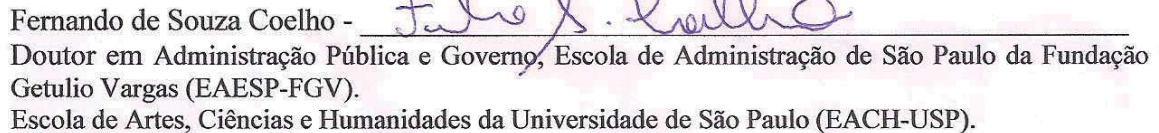 Fernando de Souza Coelho -
Doutor em Administração Pública e Governo, Escola de Administração de São Paulo da Fundação
Getulio Vargas (EAESP-FGV).
Escola de Artes, Ciências e Humanidades da Universidade de São Paulo (EACH-USP).